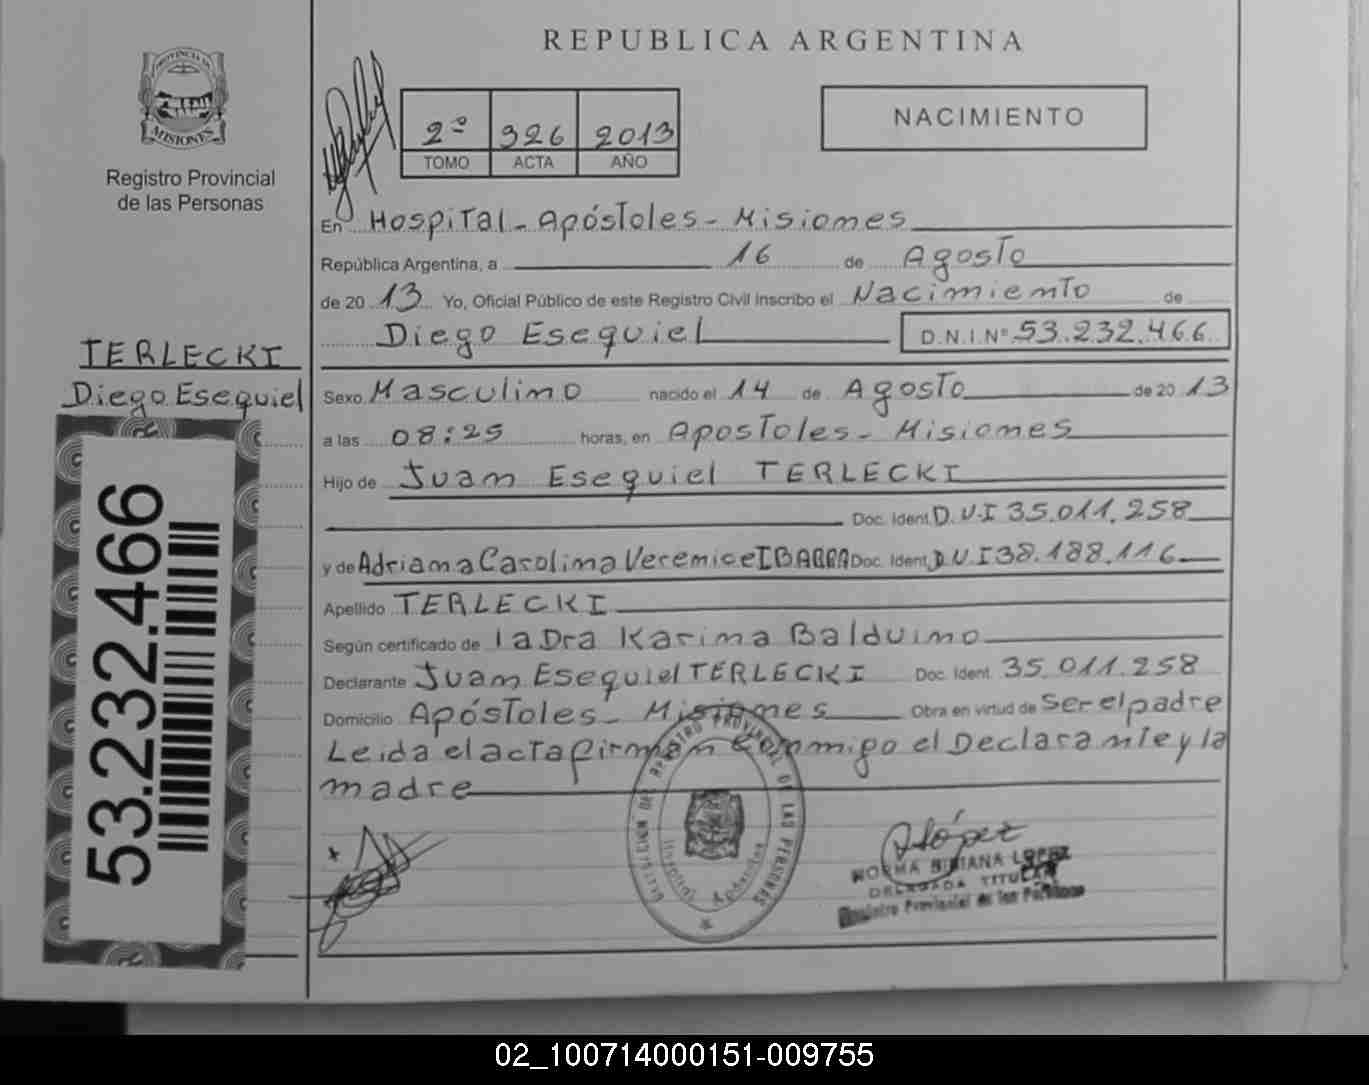 REPUBLICA ARGENTINA
PROVINCIA DE
MISIONES
Registro Provincial
de las Personas
2º 326 2013
TOMO ACTA AÑO
NACIMIENTO
En Hospital - Apóstoles - Misiones
República Argentina, a 16 de Agosto
de 20 13 Yo, Oficial Público de este Registro Civil Inscribo el Nacimiento de
Diego Esequiel D.N.I. Nº 53.232.466
TERLECKI
Diego Esequiel
Sexo Masculino nacido el 14 de Agosto de 20 13
a las 08:25 horas, en Apostoles - Misiones
Hijo de Juan Esequiel TERLECKI
Doc. Ident. D.U.I 35.011.258
y de Adriana Carolina Verenice IBARRA Doc. Ident. D.U.I 38.188.116
Apellido TERLECKI
Según certificado de la Dra Karina Balduino
Declarante Juan Esequiel TERLECKI Doc. Ident. 35.011.258
Domicilio Apóstoles - Misiones Obra en virtud de Ser el padre
Leida el acta firman Conmigo el Declarante y la
madre
53.232.466
REGISTRO PROVINCIAL DE LAS PERSONAS
Hospital Apóstoles
NORMA BIBIANA LOPEZ
DELEGADA TITULAR
Registro Provincial de las Personas
02_100714000151-009755